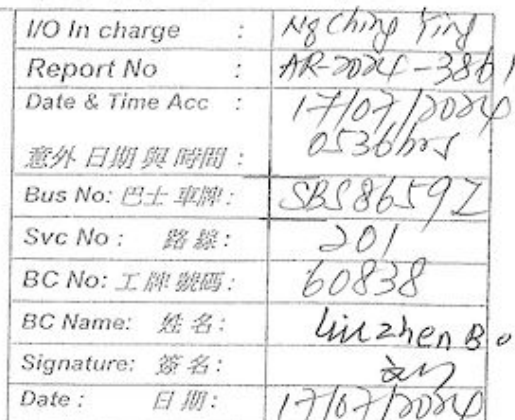 I/O In charge : Ng Ching Ying
Report No : AR-2024-3861
Date & Time Acc : 17/07/2024
意外 日期 與 時間 : 0536hrs
Bus No: 巴士 車牌 : SBS8659Z
Svc No : 路 線 : 201
BC No: 工 牌 號碼 : 60838
BC Name: 姓 名 : Liu zhen Bo
Signature: 簽 名 :
Date : 日 期 : 17/07/2024